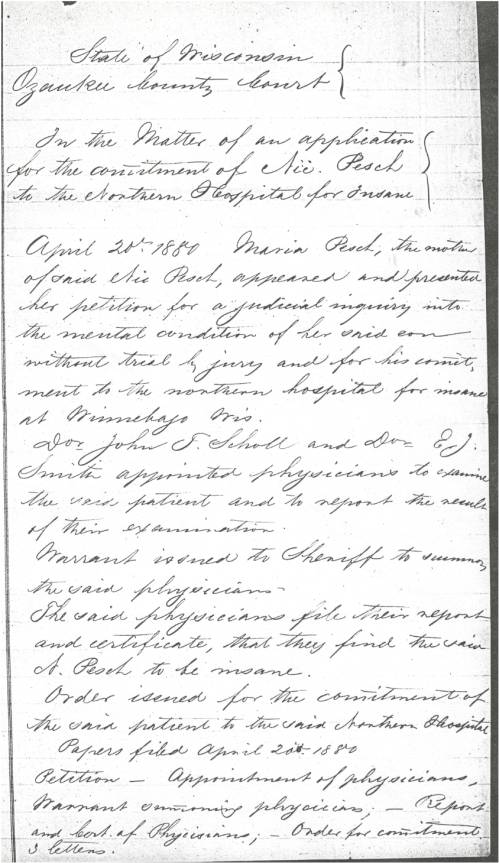 State of Wisconsin
Ozaukee County Court
In the Matter of an application
for the comitment of Nic. Pesch
to the Northern Hospital for Insane
April 20th 1880 Maria Pesch, the mother
of said Nic Pesch, appeared and presented
her petition for a judicial inquiry into
the mental condition of her said son
without trial by jury and for his comit,
ment to the northern hospital for insane
at Winnebago Wis.
Dor John T. Scholl and Dor E. J.
Smith appointed physicians to examine
the said patient and to report the result
of their examination.
Warrant issued to Sheriff to summon
the said physicians
The said physicians file their report
and certificate, that they find the said
N. Pesch to be insane.
Order issued for the comitment of
the said patient to the said Northern Hospital
Papers filed April 20th 1880
Petition – Appointment of physicians,
Warrant summoning physicians; – Report
and Cert. of Physicians; – Order for comitment
3 letters.